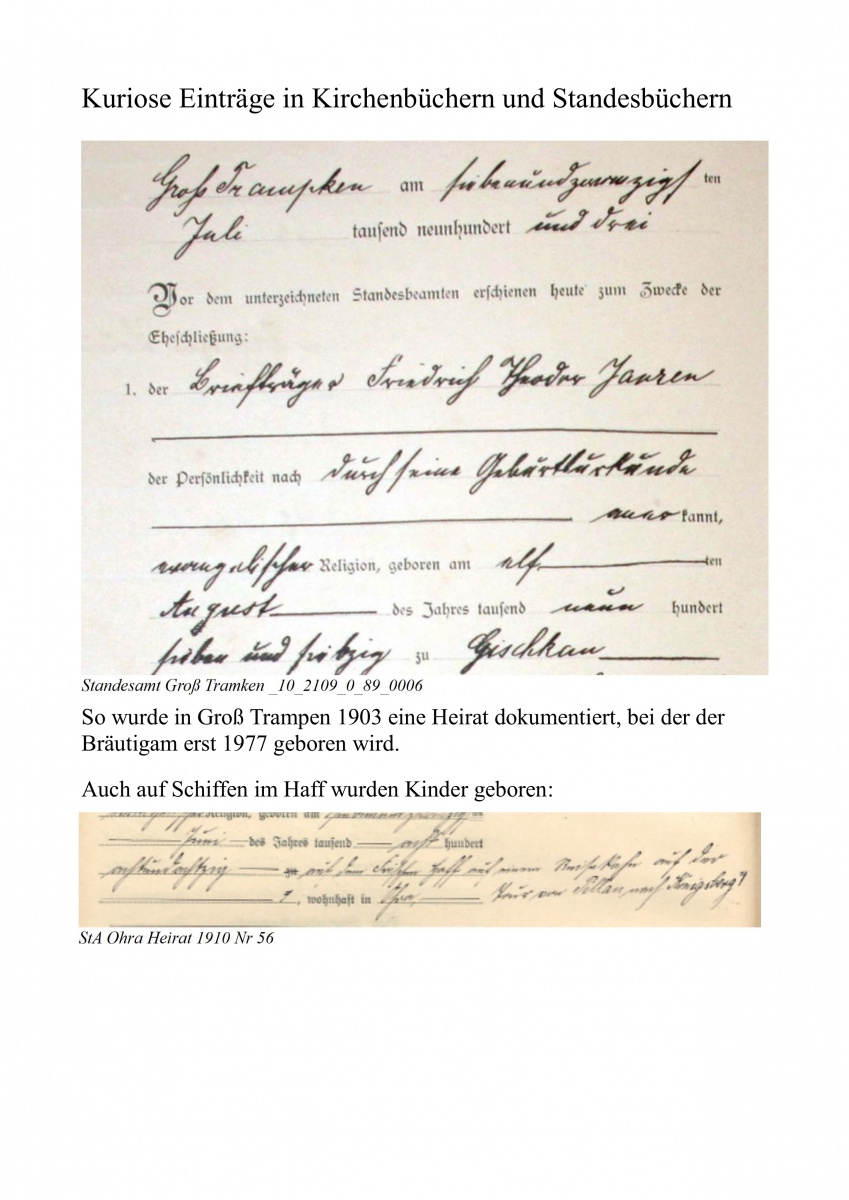 Kuriose Einträge in Kirchenbüchern und Standesbüchern
Groß Trampken am siebenundzwanzigs ten
Juli tausend neunhundert und drei
Vor dem unterzeichneten Standesbeamten erschienen heute zum Zwecke der
Eheschließung:
1. der Briefträger Friedrich Theodor Janzen
der Persönlichkeit nach durch seine Geburtsurkunde
aner kannt,
evangelischer Religion, geboren am elf ten
August des Jahres tausend neun hundert
sieben und siebzig zu Gischkau
Standesamt Groß Tramken _10_2109_0_89_0006
So wurde in Groß Trampen 1903 eine Heirat dokumentiert, bei der der
Bräutigam erst 1977 geboren wird.
Auch auf Schiffen im Haff wurden Kinder geboren:
Religion, geboren am
Juni des Jahres tausend acht hundert
achtundachtzig auf dem Frischen Haff auf einem Reisekahn auf der
, wohnhaft in Ohra, Tour von Pillau nach Königsberg
StA Ohra Heirat 1910 Nr 56